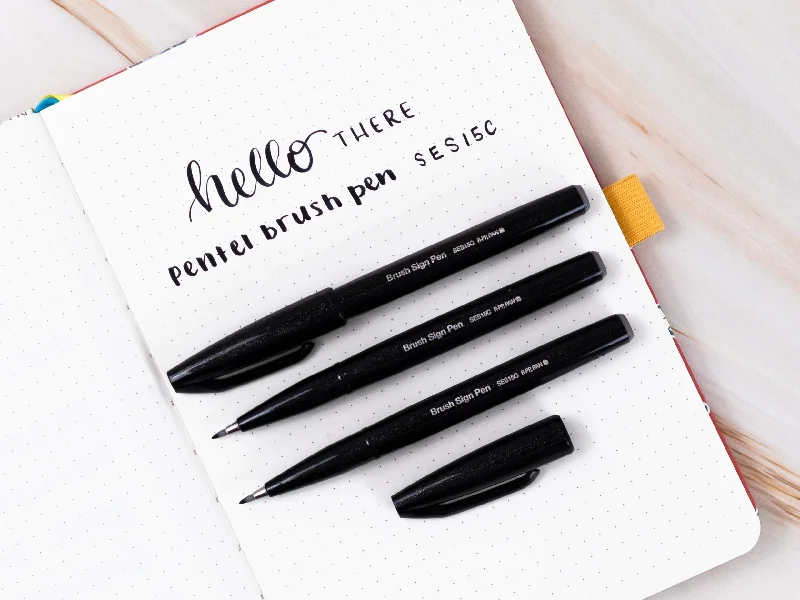 hello THERE
pentel brush pen SES15C
Brush Sign Pen SES15C
Brush Sign Pen SES15C
Brush Sign Pen SES15C